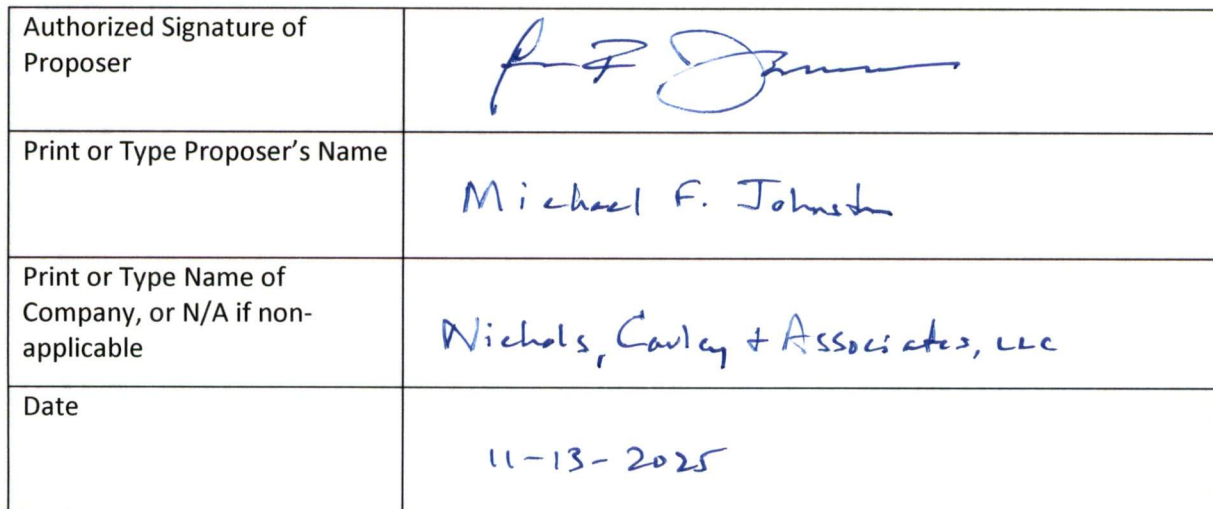 Authorized Signature of
Proposer
Print or Type Proposer's Name
Michael F. Johnston
Print or Type Name of
Company, or N/A if non-
applicable
Nichols, Cauley + Associates, LLC
Date
11-13-2025